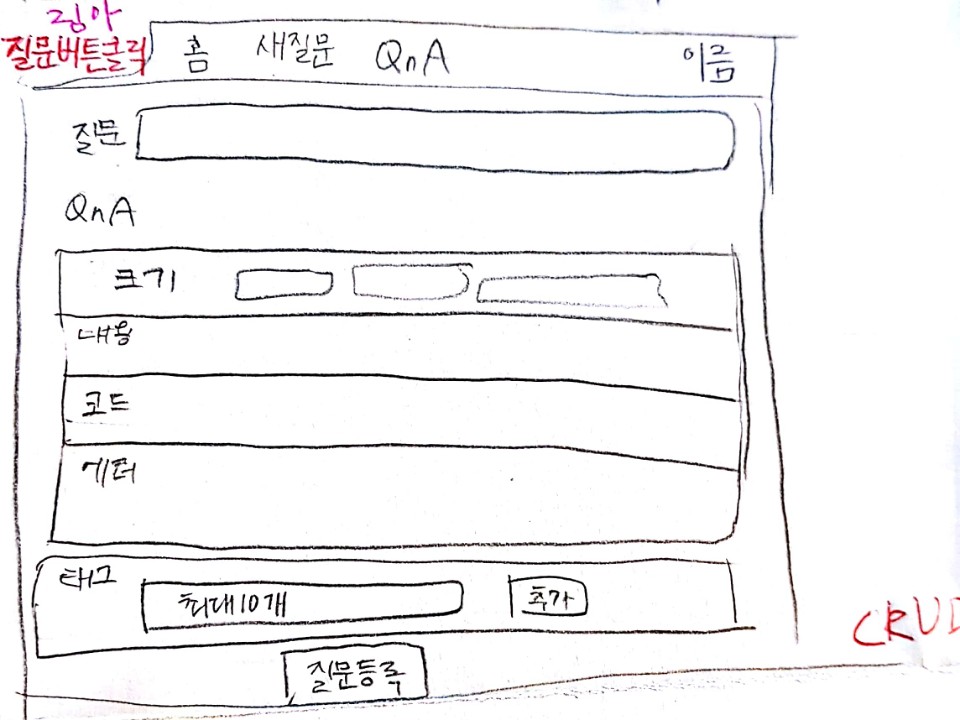 링아
질문버튼클릭
홈 새질문 QnA 이름
질문
QnA
크기
내용
코드
에러
태그
최대10개 추가
질문등록
CRUD